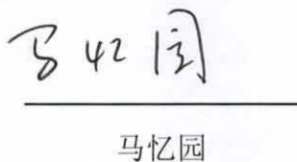 马忆园
马忆园